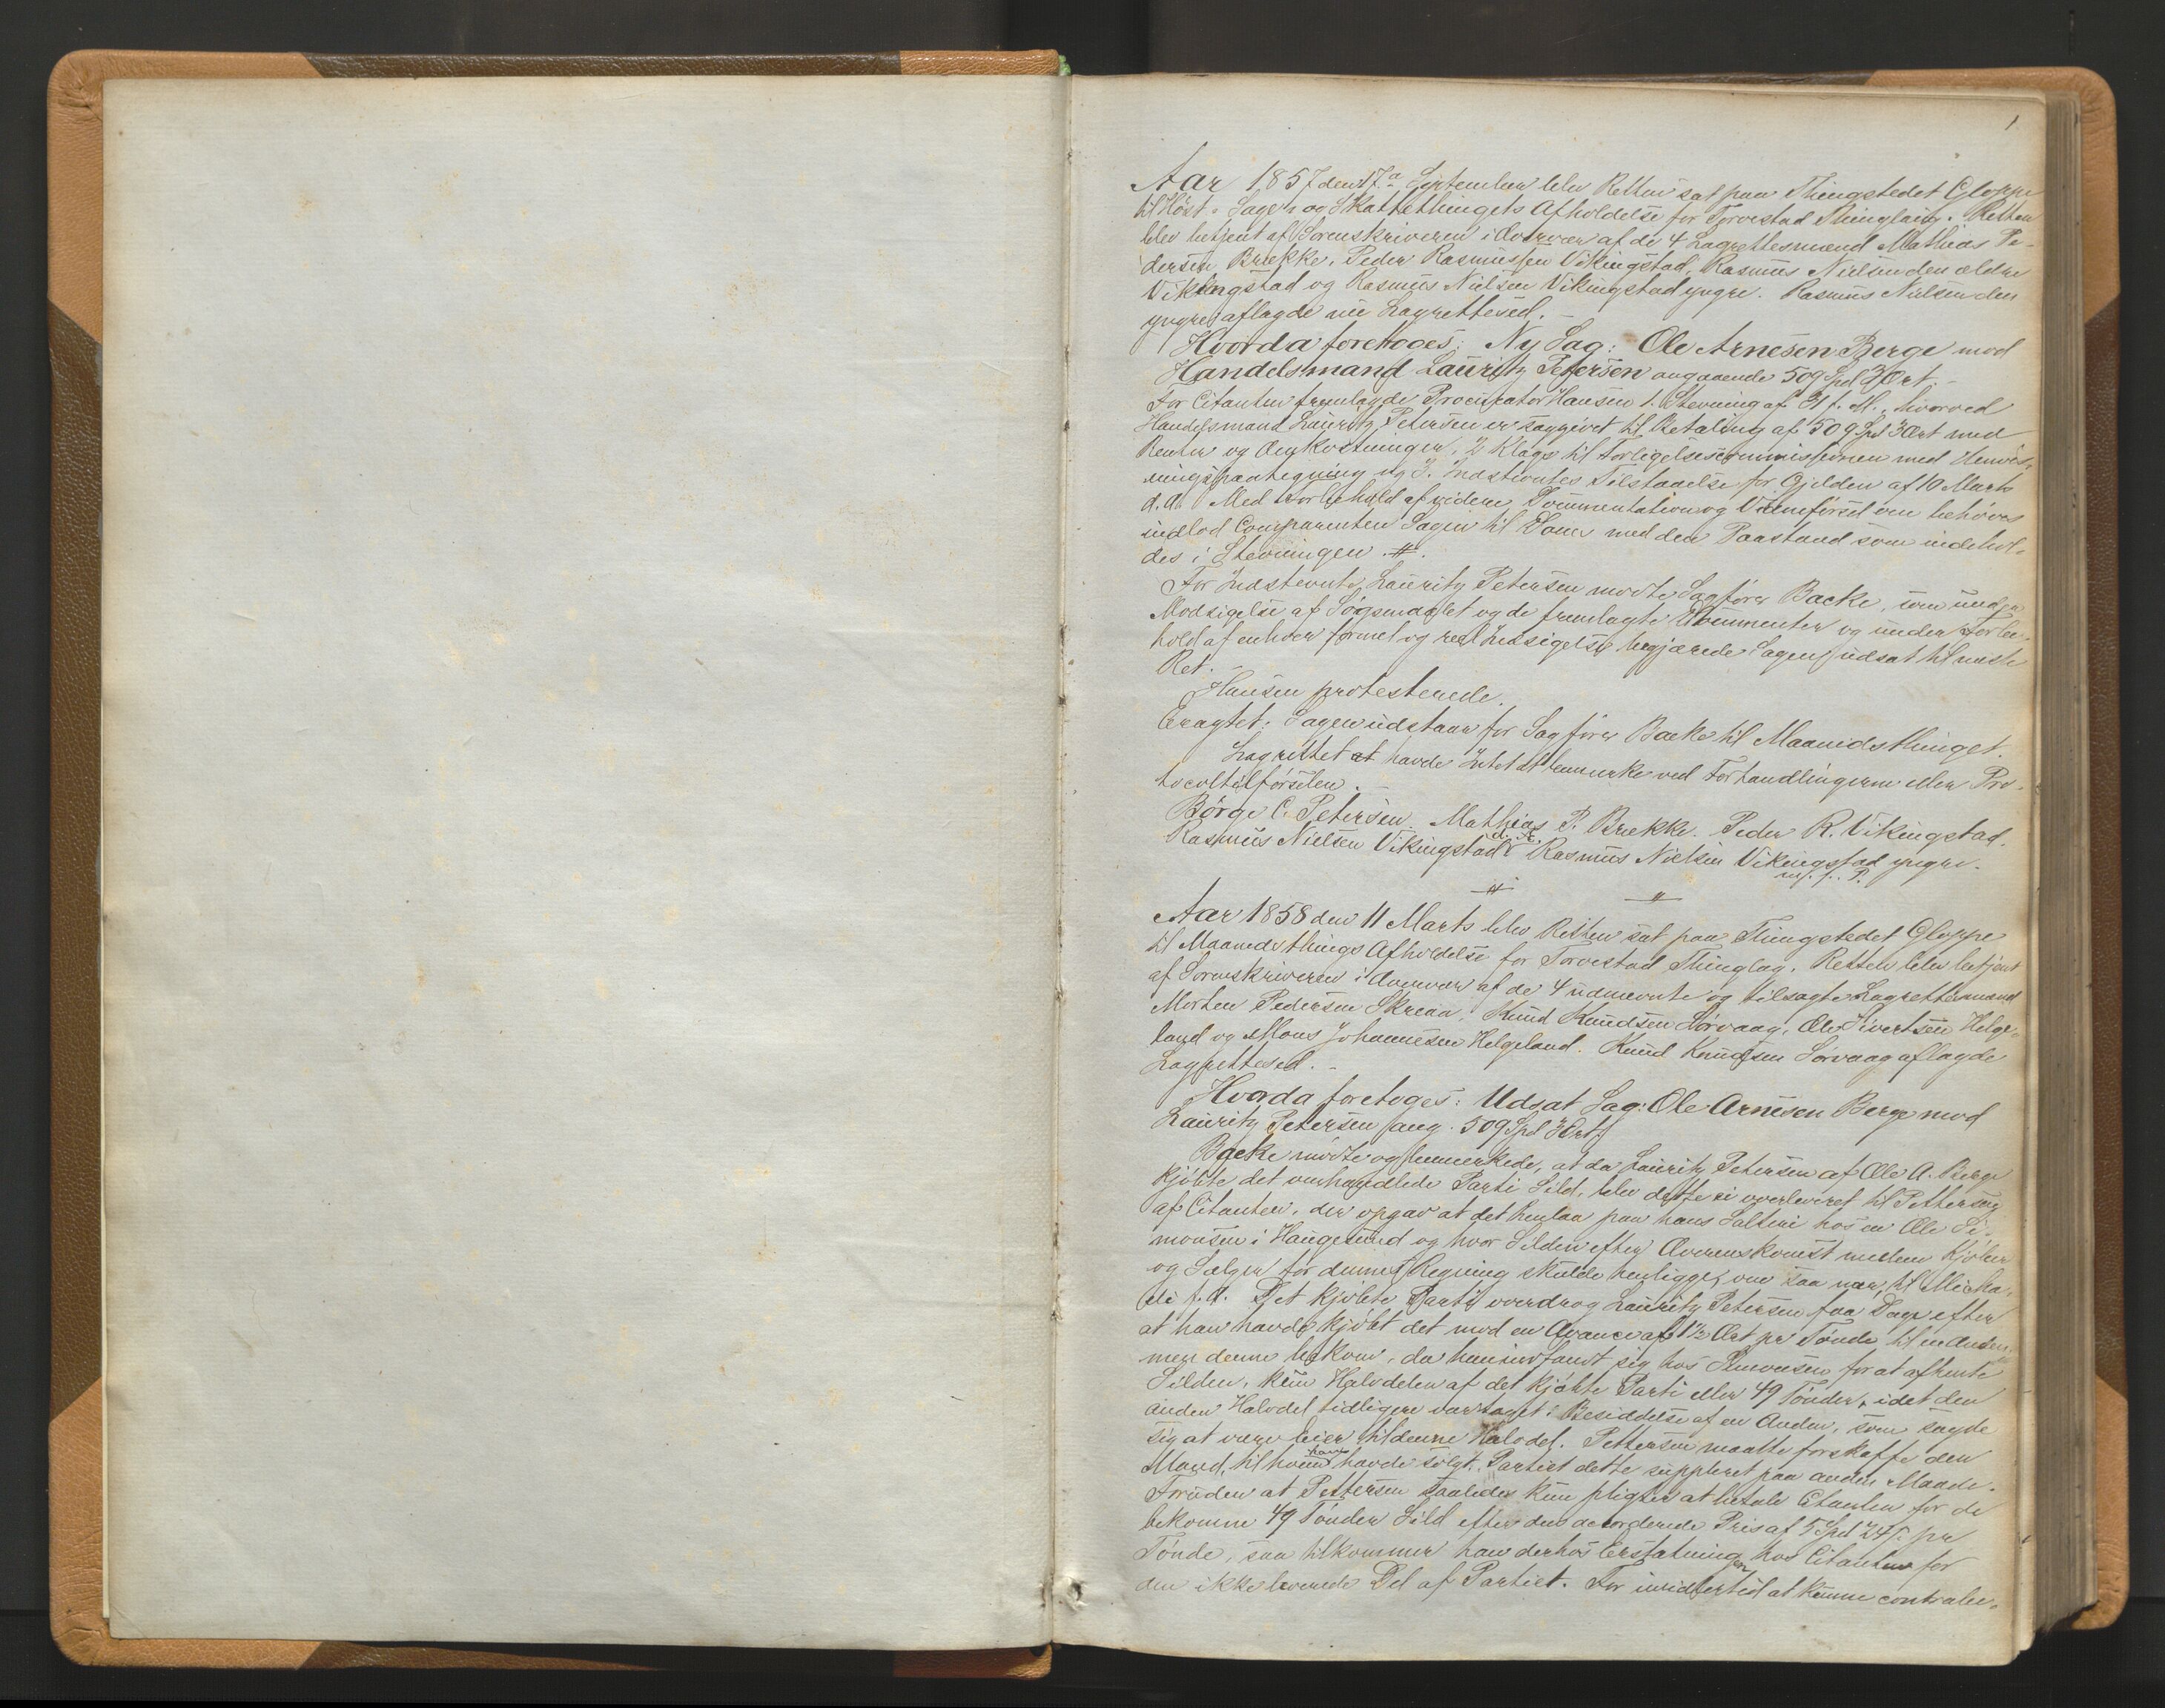 1
Aar 1857 den 17de September blev Retten sat paa Thingstedet Gloppe
til Höst- Sage- og Skattethingets Afholdelse for Torvestad Thinglaug. Retten
blev betjent af Sorenskriveren i Overvær af de 4 Lagrettesmænd Mathias Pe-
dersen Brække, Peder Rasmussen Vikingstad, Rasmus Nielsen den ældre
Vikingstad og Rasmus Nielsen Vikingstad yngre. Rasmus Nielsen den
yngre aflagde nu Lagrettesed.
Hvorda foretoges: Ny Sag: Ole Arnesen Berge mod
Handelsmand Lauritz Petersen angaaende 509 Spd 3 Ort.
For Citanten fremlagde Procurator Hansen 1. Stevning af 31 f. M., hvorved
Handelsmand Lauritz Petersen er saggivet til Betaling af 509 Spd 3 Ort med
Renter og Omkostninger, 2 Klage til Forligelsescommissionen med Henvis-
ningspaategning og 3. Indstevntes Tilstaaelse for Gjelden af 10 Marts
d. A. Med Forbehold af videre Documentation og Vidneförsel om behöves
indlod Comparenten Sagen til Doms med den Paastand som indehol-
des i Stevningen.
For Indstevnte Lauritz Petersen mödte Sagförer Backe, som under
Modsigelse af Sögsmaalet og de fremlagte Documenter og under Forbe-
hold af enhver formel og reel Indsigelse begjærede Sagen udsat til næste
Ret.
Hansen protesterede.
Eragtet: Sagen udstaar for Sagförer Backe til Maanedsthinget.
Lagrettet havde Intet at bemærke ved Forhandlingerne eller Pro-
tocoltilförselen.
Börge C. Petersen. Mathias P. Brække. Peder R. Vikingstad.
Rasmus Nielsen Vikingstad d. Æ. Rasmus Nielsen Vikingstad yngre.
m. f. P.
Aar 1858 den 11 Marts blev Retten sat paa Thingstedet Gloppe
til Maanedsthings Afholdelse for Torvestad Thinglag. Retten blev betjent
af Sorenskriveren i Overvær af de 4 udnævnte og tilsagte Lagrettemænd
Morten Pedersen Skreaa, Knud Knudsen Sörvaag, Ole Sivertsen Helge-
land og Mons Johannesen Helgeland. Knud Knudsen Sörvaag aflagde
Lagrettesed.
Hvorda foretoges: Udsat Sag: Ole Arnesen Berge mod
Lauritz Petersen ang. 509 Spd 3 Ort.
Backe mödte og bemærkede, at da Lauritz Petersen af Ole A. Berge
kjöbte det omhandlede Parti Sild, blev dette ei overleveret til Pettersen
af Citanten, der opgav at det henlaa paa hans Salteri hos en Ole Si-
monsen i Haugesund og hvor Silden efter Overenskomst mellem Kjöber
og Sælger for dennes Regning skulde henligge, om saa var, til Micha-
eli f. A. Det kjöbte Parti overdrog Lauritz Petersen faa Dage efter
at han havde kjöbt det mod en Avance af 1½ Ort pr Tönde til en Anden,
men denne bekom, da han indfandt sig hos Simonsen for at afhente
Silden, kun Halvdelen af det kjöbte Parti eller 49 Tönder, idet den
anden Halvdel tidligere var taget i Besiddelse af en Anden, som sagde
sig at være Eier til denne Halvdel. Pettersen maatte forskaffe den
Mand, til hvem han havde solgt Partiet dette suppleret paa anden Maade.
Foruden at Pettersen saaledes kun pligter at betale Citanten for de
bekomne 49 Tönder Sild efter den accorderede Pris af 5 Spd 24 s. pr
Tönde, saa tilkommer han derhos Erstatning hos Citanten for
den ikke leverede Del af Partiet. For imidlertid at kunne contrabe-